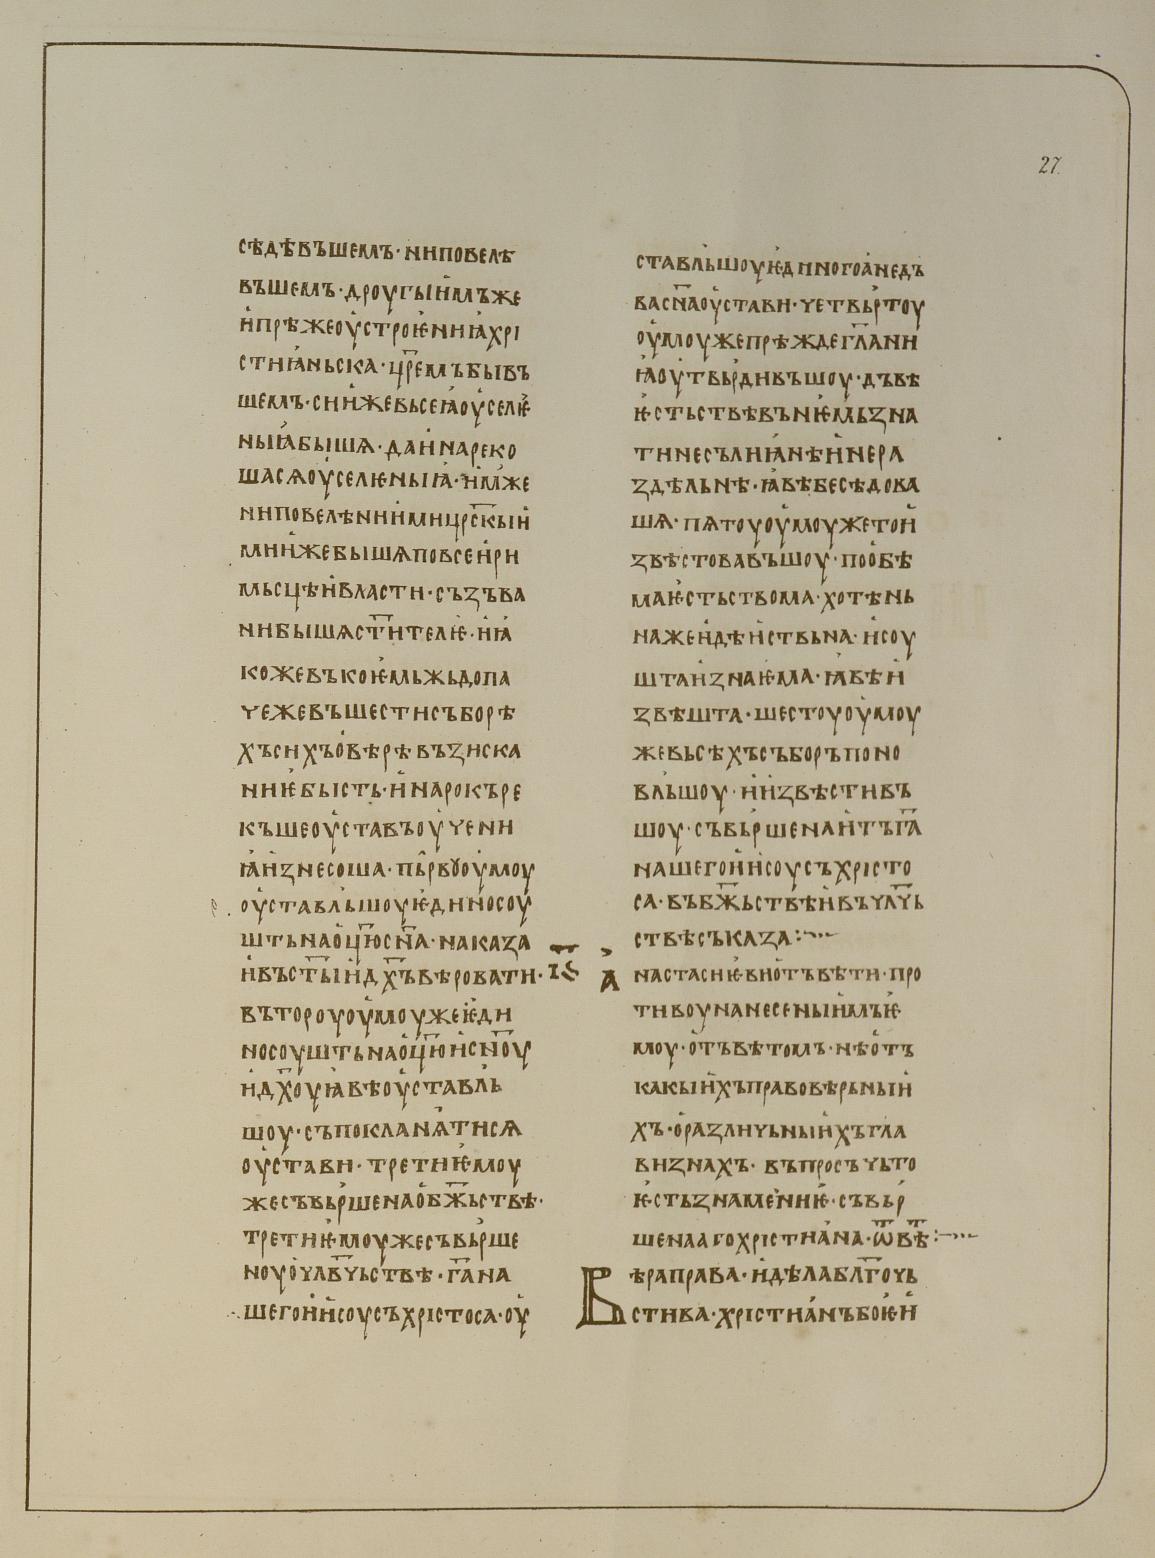 27
сѣдѣвъшемъ· ниповелѣ
въшемъ· дроугыимъже
ипрѣжеоустроѥниꙗхрі
стиꙗньска· цр҃емъбывъ
шемъ· сиижевьсеꙗоуселѥ
ныꙗбышѧ· даинареко
шасѧоуселѥныꙗ· имже
ниповелѣниимицр҃скыи
миижебышѧповсеири
мьсцѣивласти· съзъва
нибышѧст҃ителѥ· иꙗ
кожевъкоѥмьжьдопа
чежевъшестисъборѣ
хъсихъовѣрѣвъзиска
ниѥбысть· инарокъре
къшеоуставъоучени
ꙗизнесоша· пьрвꙋоумоу
оуставльшоуѥдиносоу
штьнаоц҃юсн҃а· наказа
ивъст҃ыидх҃ъвѣровати·
въторооуоумоужеѥди
носоуштьнаоц҃юисн҃оу
идх҃оуꙗвѣоуставль
шоу· съпокланѧтисѧ
оустави· третиѥмоу
жесъвьршенаобж҃ьствѣ·
третиѥмоужесъвьрше
ноуочлв҃чьствѣ· г҃ана
шегоиисоусъхрістоса· оу
ставльшоуѥдиногоанедъ
васн҃аоустави· четвьртоу
оумоужепрѣждегл҃ани
ꙗоутвьрдивъшоу· дъвѣ
ѥстьствѣвънѥмьзна
тинесълиꙗнѣинера
здѣльнѣ· ꙗвѣбесѣдова
шѧ· пѧтоуоумоужетои
звѣстовавъшоу· пообѣ
маѥстьствома· хотѣнь
нажеидѣиствьна· исоу
штаизнаѥма· ꙗвѣи
звѣшта· шестоуоумоу
жевьсѣхъсъборъпоно
вльшоу· иизвѣстивъ
шоу· съвьршенаитъг҃а
нашегоиисоусъхрісто
са· въбж҃ьствѣивъчл҃чь
ствѣсъказа:~
і҃ѕ
Анастасиѥвиотъвѣти· про
тивоунанесеныимъѥ
моу· отъвѣтомъ· нѣотъ
какыихъправовѣрьныи
хъ· оразличьныихъгла
визнахъ· въпросъчьто
ѥстьзнамениѥ· съвьр
шенааго хрістиана· ѿвѣ:~
Вѣраправа· идѣлаблг҃очь
стива· хрістианъбоѥи